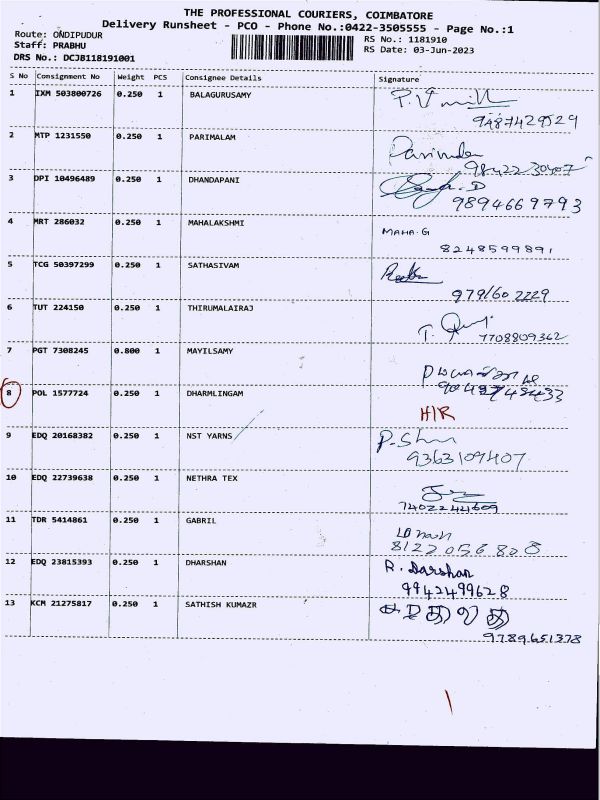 THE PROFESSIONAL COURIERS, COIMBATORE
Delivery Runsheet - PCO - Phone No.:0422-3505555 - Page No.:1
Route: ONDIPUDUR
RS No.: 1181910
Staff: PRABHU
RS Date: 03-Jun-2023
DRS No.: DCJB118191001
S No Consignment No Weight PCS Consignee Details Signature
1 IXM 503800726 0.250 1 BALAGURUSAMY
9487429529
2 MTP 1231550 0.250 1 PARIMALAM
98422 30407
3 DPI 10496489 0.250 1 DHANDAPANI
9894669793
4 MRT 286032 0.250 1 MAHALAKSHMI MAHA.G
8248599891
5 TCG 50397299 0.250 1 SATHASIVAM
979160 2229
6 TUT 224150 0.250 1 THIRUMALAIRAJ
7708809362
7 PGT 7308245 0.800 1 MAYILSAMY
8 POL 1577724 0.250 1 DHARMLINGAM
H/R
9 EDQ 20168382 0.250 1 NST YARNS
9363109407
10 EDQ 22739638 0.250 1 NETHRA TEX
7402244609
11 TDR 5414861 0.250 1 GABRIL
8122056808
12 EDQ 23815393 0.250 1 DHARSHAN R. Darshan
9942499628
13 KCM 21275817 0.250 1 SATHISH KUMAZR
9789651378